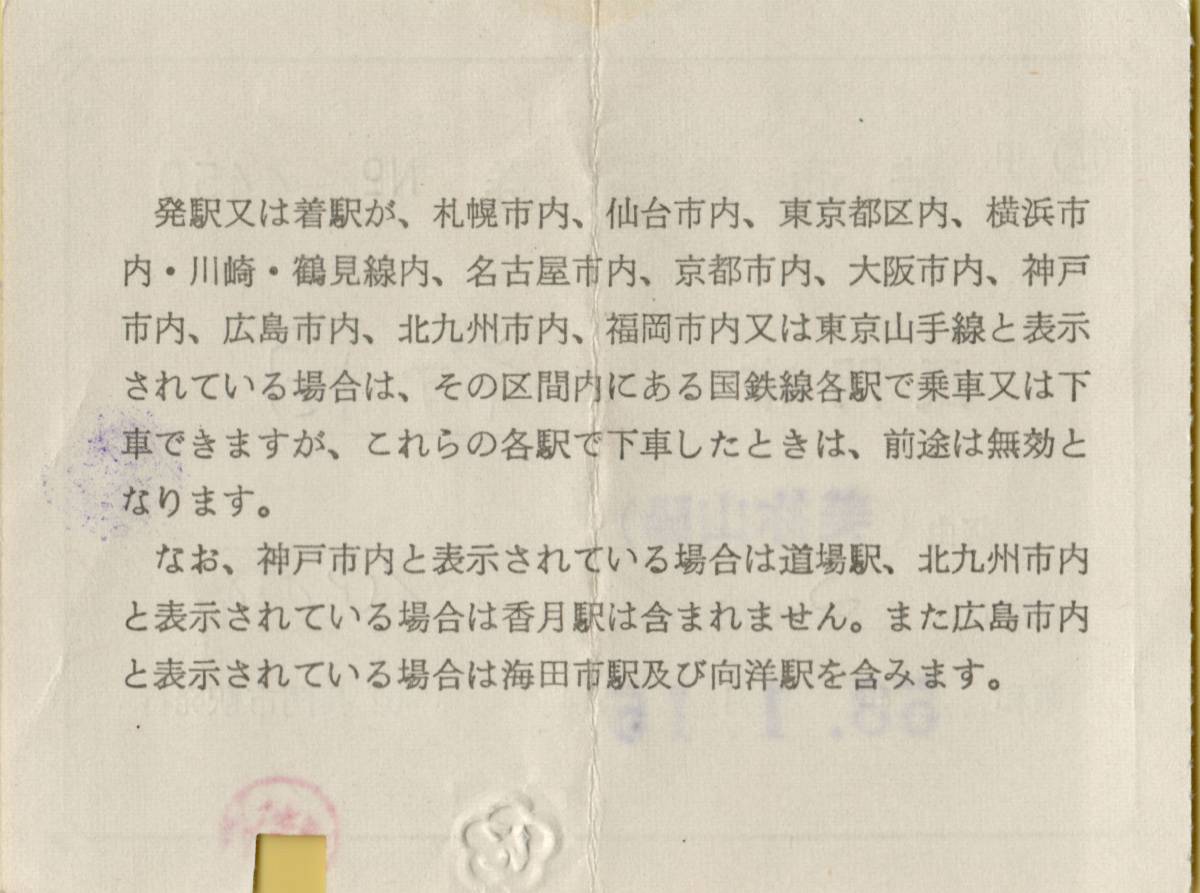 発駅又は着駅が、札幌市内、仙台市内、東京都区内、横浜市
内・川崎・鶴見線内、名古屋市内、京都市内、大阪市内、神戸
市内、広島市内、北九州市内、福岡市内又は東京山手線と表示
されている場合は、その区間内にある国鉄線各駅で乗車又は下
車できますが、これらの各駅で下車したときは、前途は無効と
なります。
なお、神戸市内と表示されている場合は道場駅、北九州市内
と表示されている場合は香月駅は含まれません。また広島市内
と表示されている場合は海田市駅及び向洋駅を含みます。